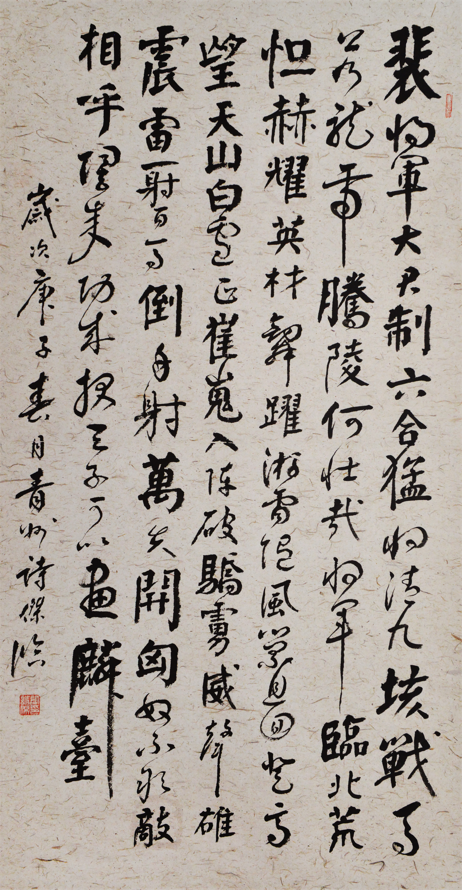 裴将軍大君制六合猛将清九垓戰馬
若龍虎騰陵何壯哉将軍臨北荒
恒赫耀英材舞躍游雷随風縈且回登高
望天山白雲正崔嵬入陣破驕虜威聲雄
震雷一射百馬倒再射萬夫開匈奴不敢敵
相呼歸去来功成報天子可以畫麟臺
歲次庚子春月青州詩傑臨